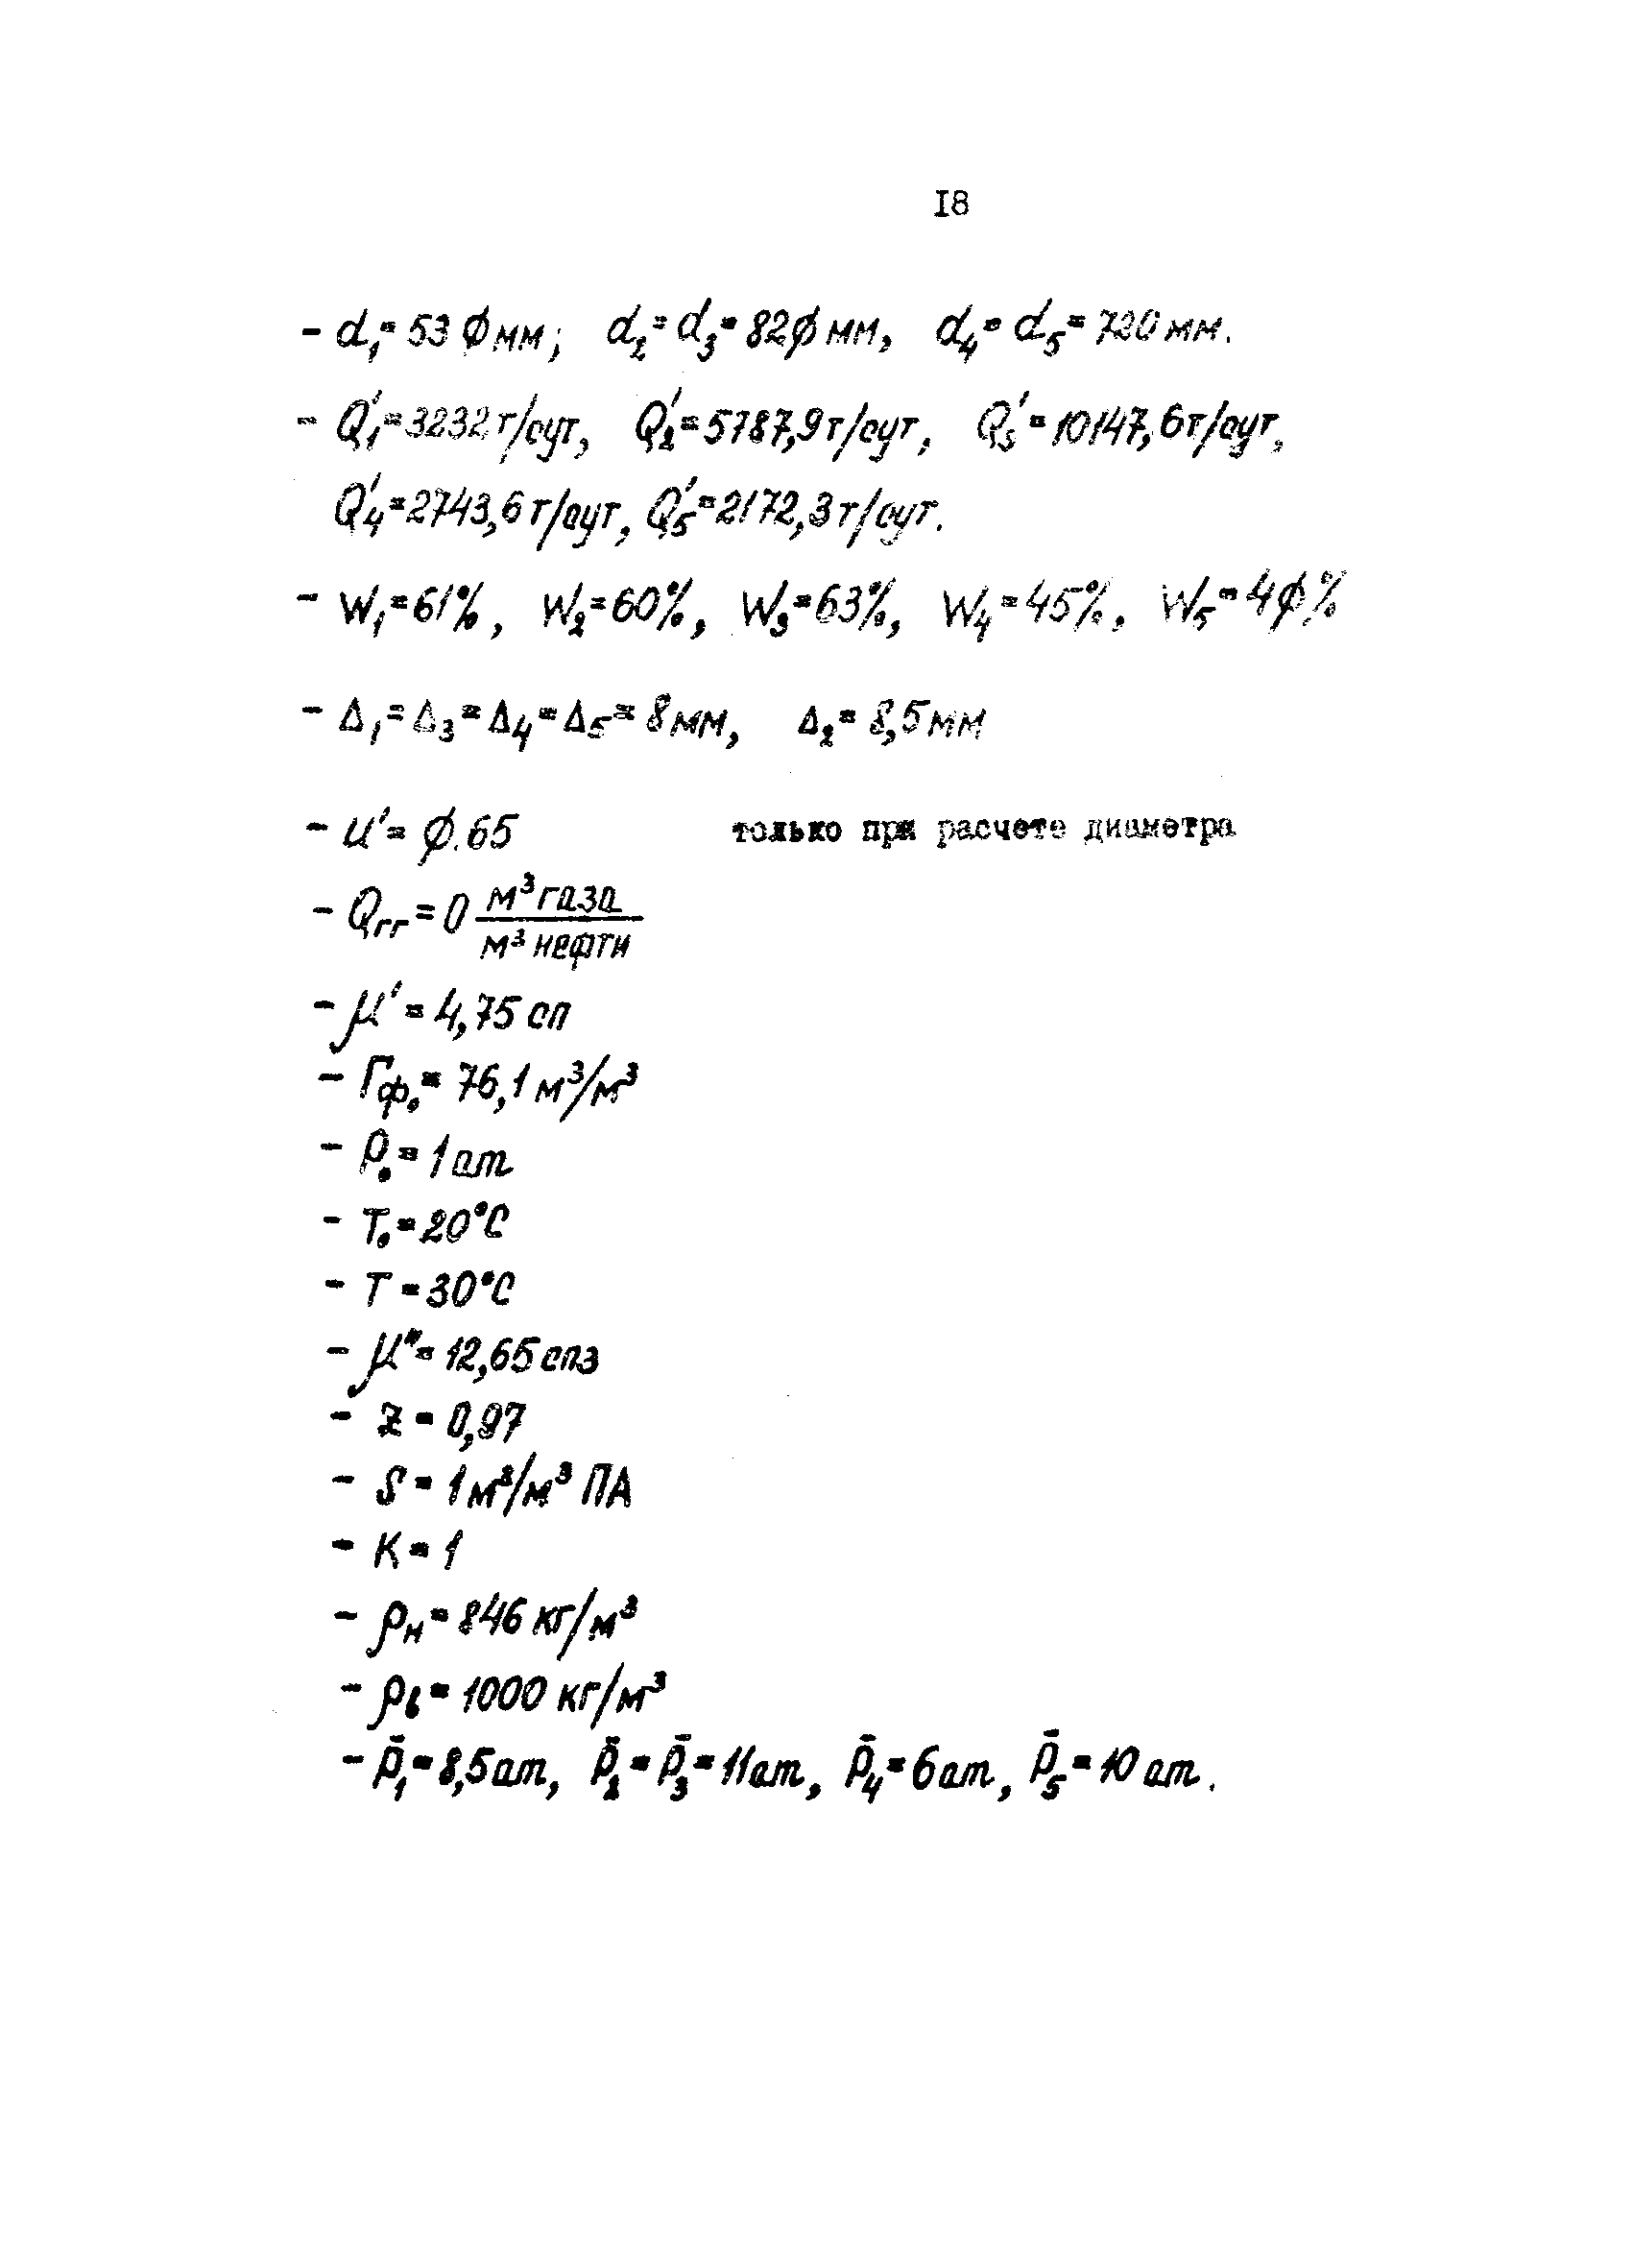 I8
- d₁=53ϕмм; d₂=d₃=82ϕмм, d₄=d₅=720мм.
- Q₁'=3232т/сут, Q₂'=5787,9т/сут, Q₃'=10147,6т/сут,
Q₄'=2743,6т/сут, Q₅'=2172,3т/сут.
- W₁=61%, W₂=60%, W₃=63%, W₄=45%, W₅=4ϕ%
- Δ₁=Δ₃=Δ₄=Δ₅=8мм, Δ₂=8,5мм
- u'=ϕ.65 только при расчете диаметра
- Qгг=0 м³газа
м³нефти
- μ'=4,75сп
- Гф₀=76,1м³/м³
- P₀=1ат
- T₀=20°С
- T=30°С
- μ*=12,65спз
- z=0,97
- S=1м³/м³ПА
- K=1
- ρн=846кг/м³
- ρв=1000кг/м³
- p̄₁=8,5ат, p̄₂=p̄₃=11ат, p̄₄=6ат, p̄₅=10ат.